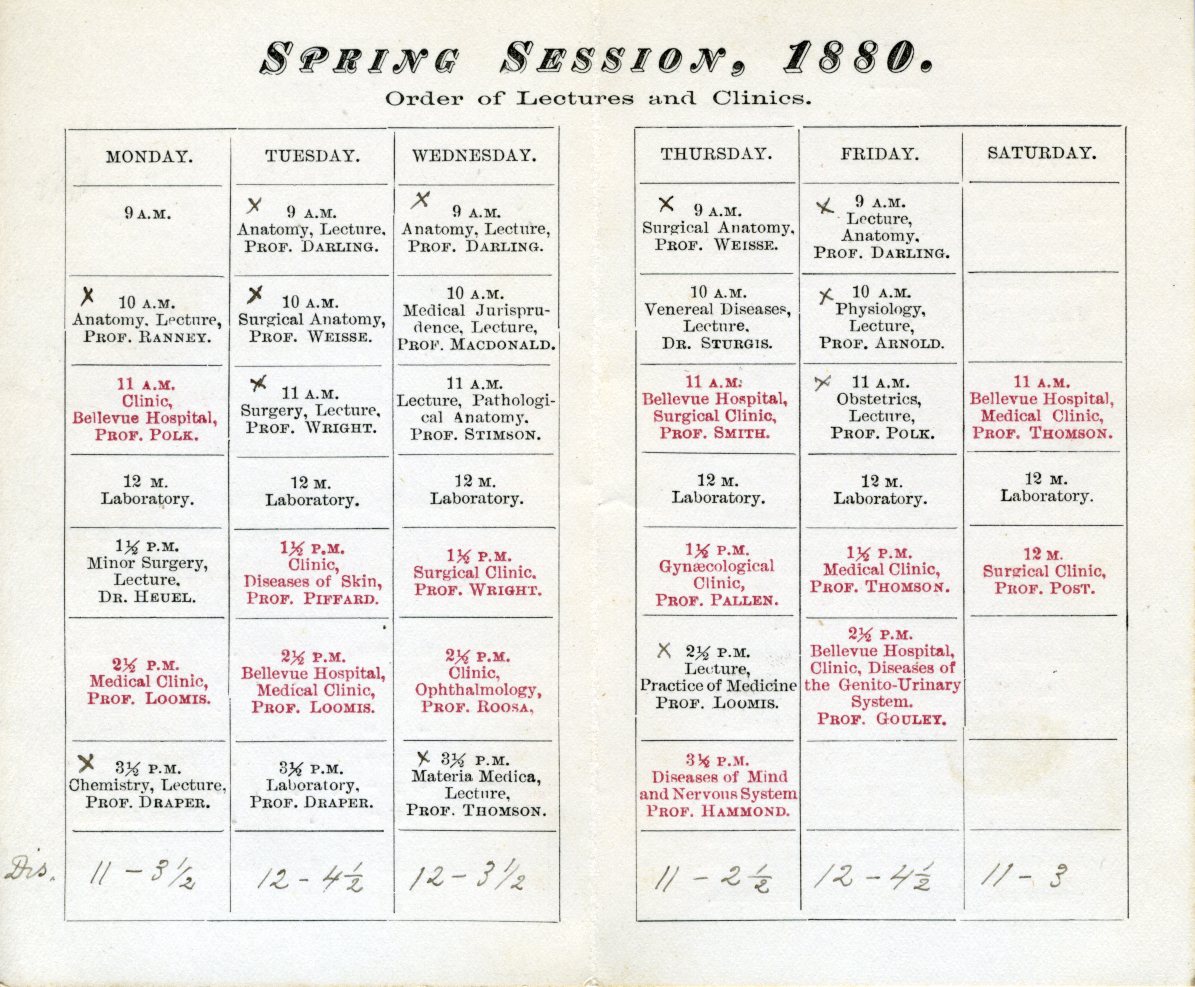 SPRING SESSION, 1880.
Order of Lectures and Clinics.
MONDAY.
TUESDAY.
WEDNESDAY.
THURSDAY.
FRIDAY.
SATURDAY.
9 A.M.
X 9 A.M.
Anatomy, Lecture,
PROF. DARLING.
X 9 A.M.
Anatomy, Lecture,
PROF. DARLING.
X 9 A.M.
Surgical Anatomy,
PROF. WEISSE.
X 9 A.M.
Lecture,
Anatomy,
PROF. DARLING.
X 10 A.M.
Anatomy, Lecture,
PROF. RANNEY.
X 10 A.M.
Surgical Anatomy,
PROF. WEISSE.
10 A.M.
Medical Jurispru-
dence, Lecture,
PROF. MACDONALD.
10 A.M.
Venereal Diseases,
Lecture,
DR. STURGIS.
X 10 A.M.
Physiology,
Lecture,
PROF. ARNOLD.
11 A.M.
Clinic,
Bellevue Hospital,
PROF. POLK.
X 11 A.M.
Surgery, Lecture,
PROF. WRIGHT.
11 A.M.
Lecture, Pathologi-
cal Anatomy.
PROF. STIMSON.
11 A.M.
Bellevue Hospital,
Surgical Clinic,
PROF. SMITH.
X 11 A.M.
Obstetrics,
Lecture,
PROF. POLK.
11 A.M.
Bellevue Hospital,
Medical Clinic,
PROF. THOMSON.
12 M.
Laboratory.
12 M.
Laboratory.
12 M.
Laboratory.
12 M.
Laboratory.
12 M.
Laboratory.
12 M.
Laboratory.
1½ P.M.
Minor Surgery,
Lecture,
DR. HEUEL.
1½ P.M.
Clinic,
Diseases of Skin,
PROF. PIFFARD.
1½ P.M.
Surgical Clinic.
PROF. WRIGHT.
1½ P.M.
Gynæcological
Clinic,
PROF. PALLEN.
1½ P.M.
Medical Clinic,
PROF. THOMSON.
12 M.
Surgical Clinic,
PROF. POST.
2½ P.M.
Medical Clinic,
PROF. LOOMIS.
2½ P.M.
Bellevue Hospital,
Medical Clinic,
PROF. LOOMIS.
2½ P.M.
Clinic,
Ophthalmology,
PROF. ROOSA.
X 2½ P.M.
Lecture,
Practice of Medicine
PROF. LOOMIS.
2½ P.M.
Bellevue Hospital,
Clinic, Diseases of
the Genito-Urinary
System.
PROF. GOULEY.
X 3½ P.M.
Chemistry, Lecture,
PROF. DRAPER.
3½ P.M.
Laboratory,
PROF. DRAPER.
X 3½ P.M.
Materia Medica,
Lecture,
PROF. THOMSON.
3½ P.M.
Diseases of Mind
and Nervous System
PROF. HAMMOND.
Dis. 11 - 3½
12 - 4½
12 - 3½
11 - 2½
12 - 4½
11 - 3